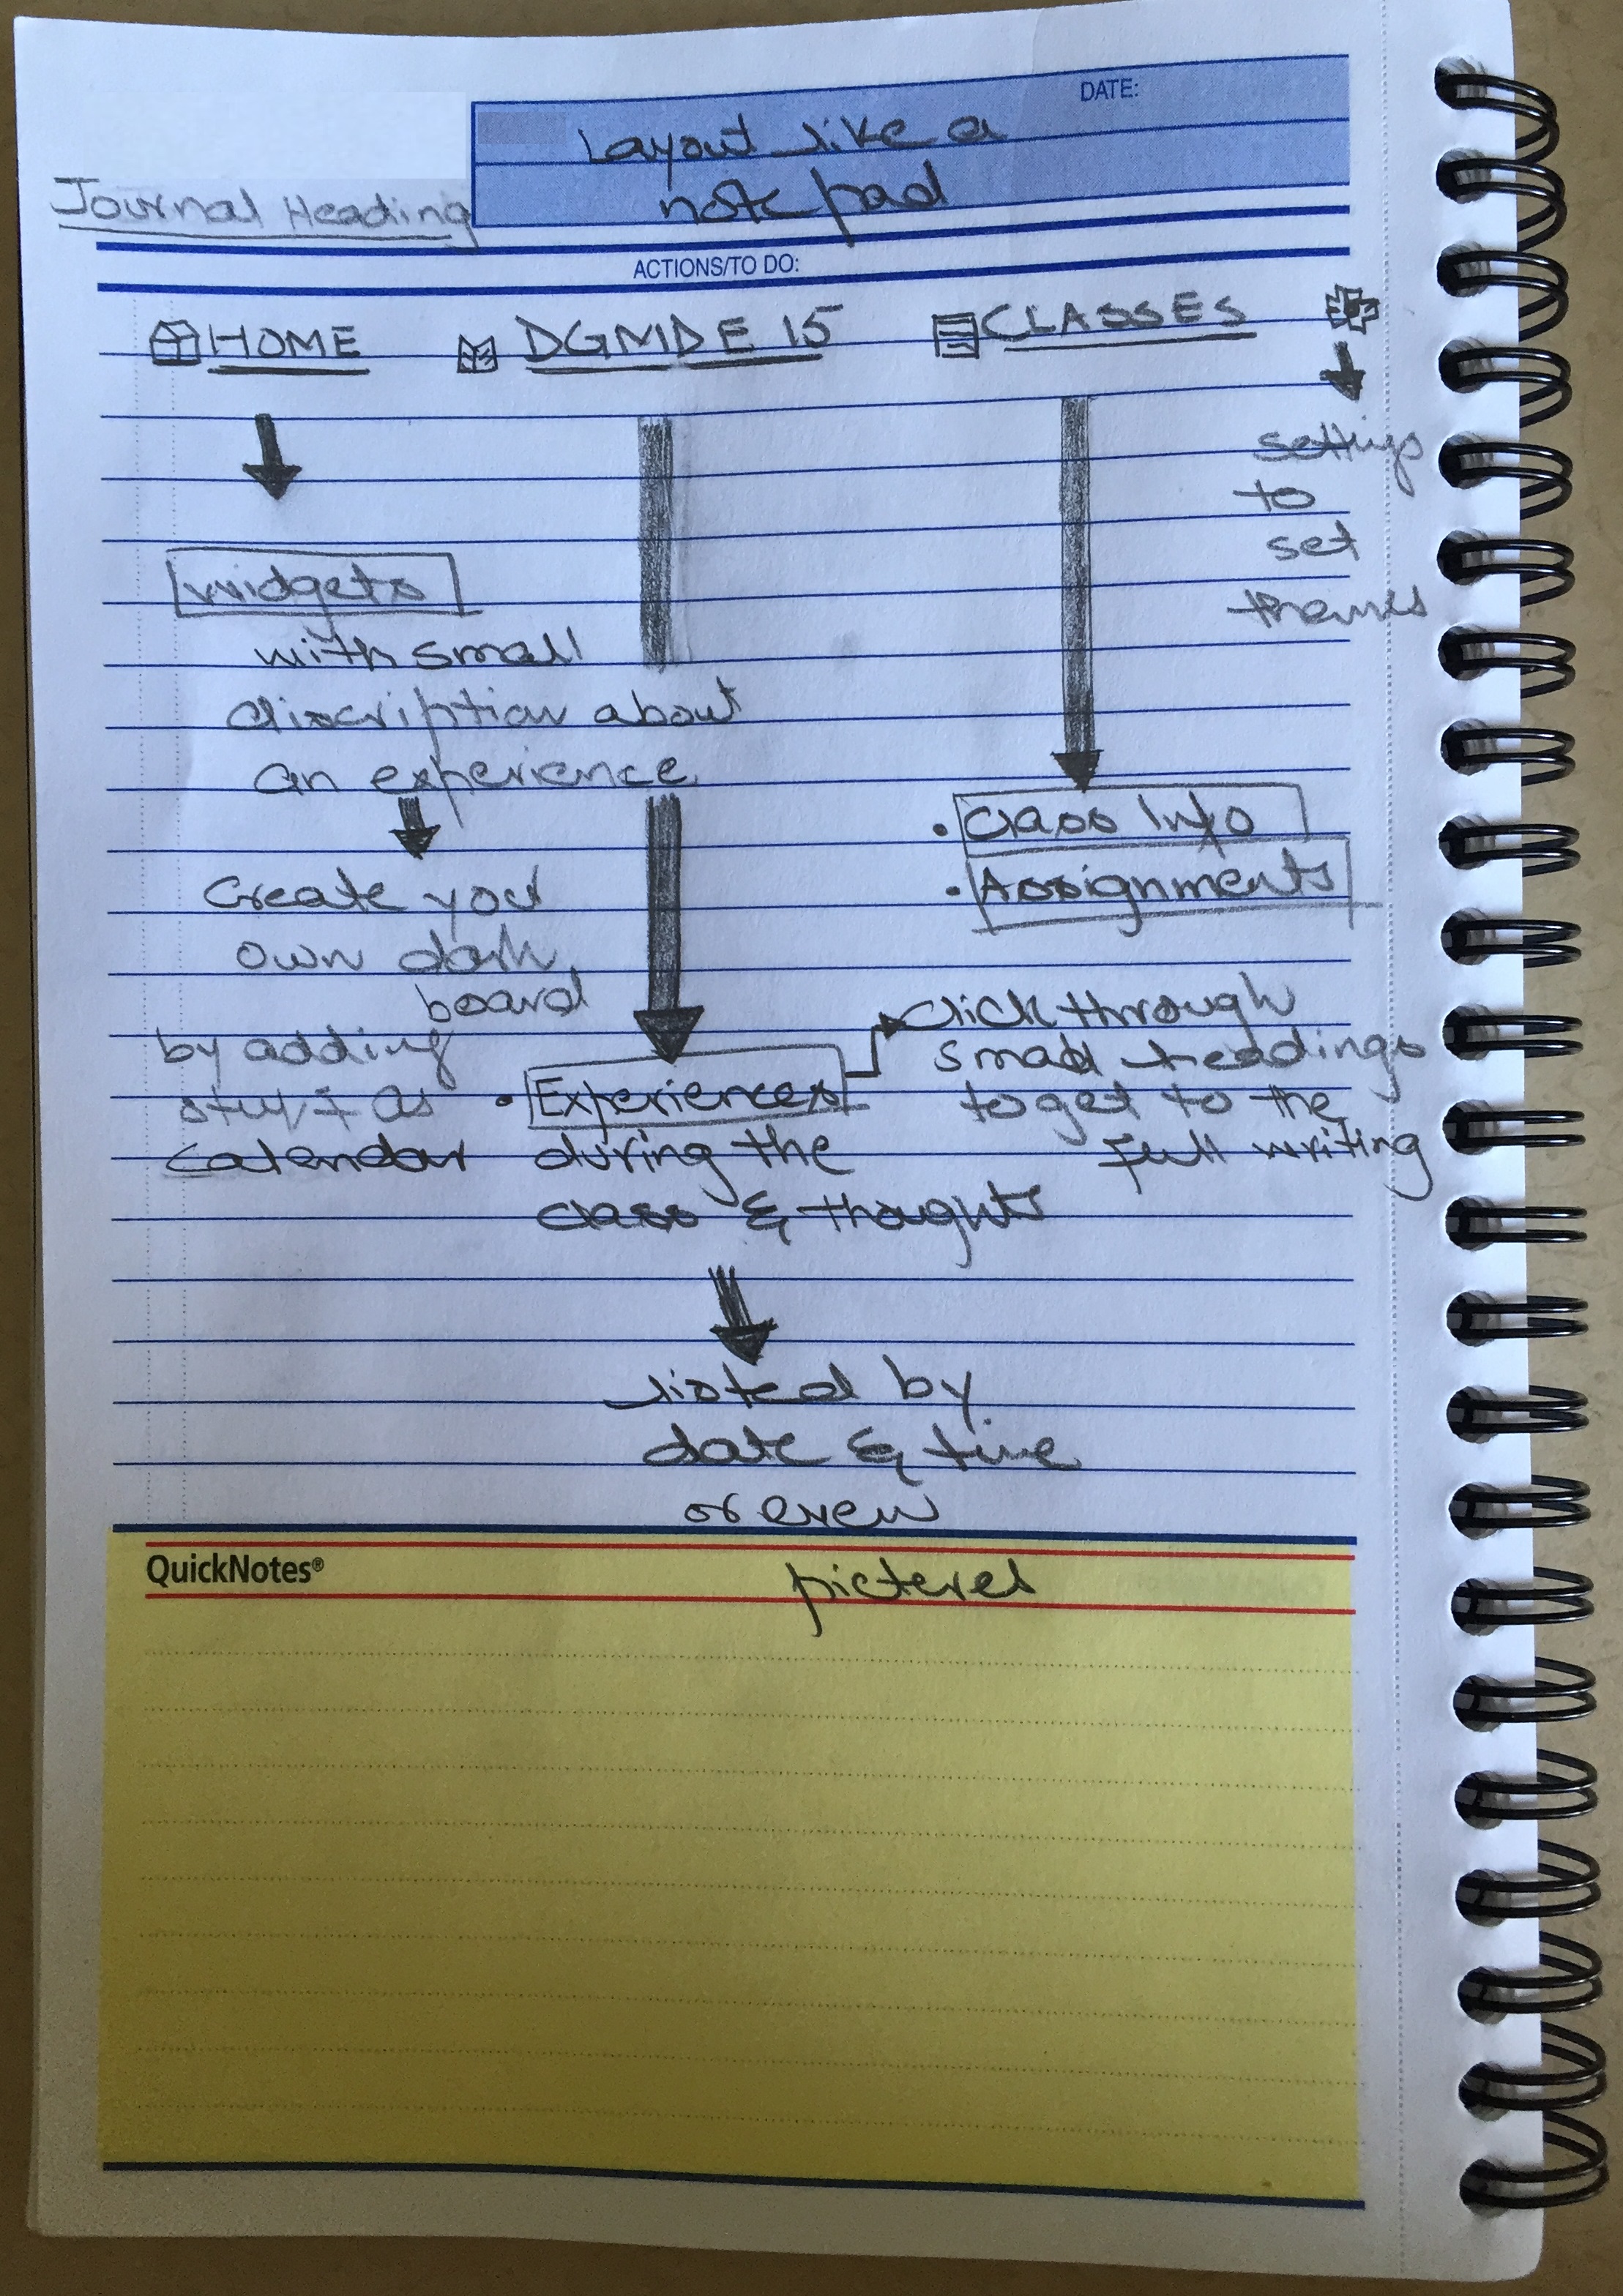 DATE:
Layout like a
note pad
Journal Heading
ACTIONS/TO DO:
HOME
DGMD E 15
CLASSES
settings
to
set
themes
widgets
with small
discription about
an experience
Create your
own dash
board
by adding
stuff as
calendar
• Class Info
• Assignments
• Experiences
during the
class & thoughts
click through
small headings
to get to the
full writing
listed by
date & time
or even
pictures
QuickNotes®